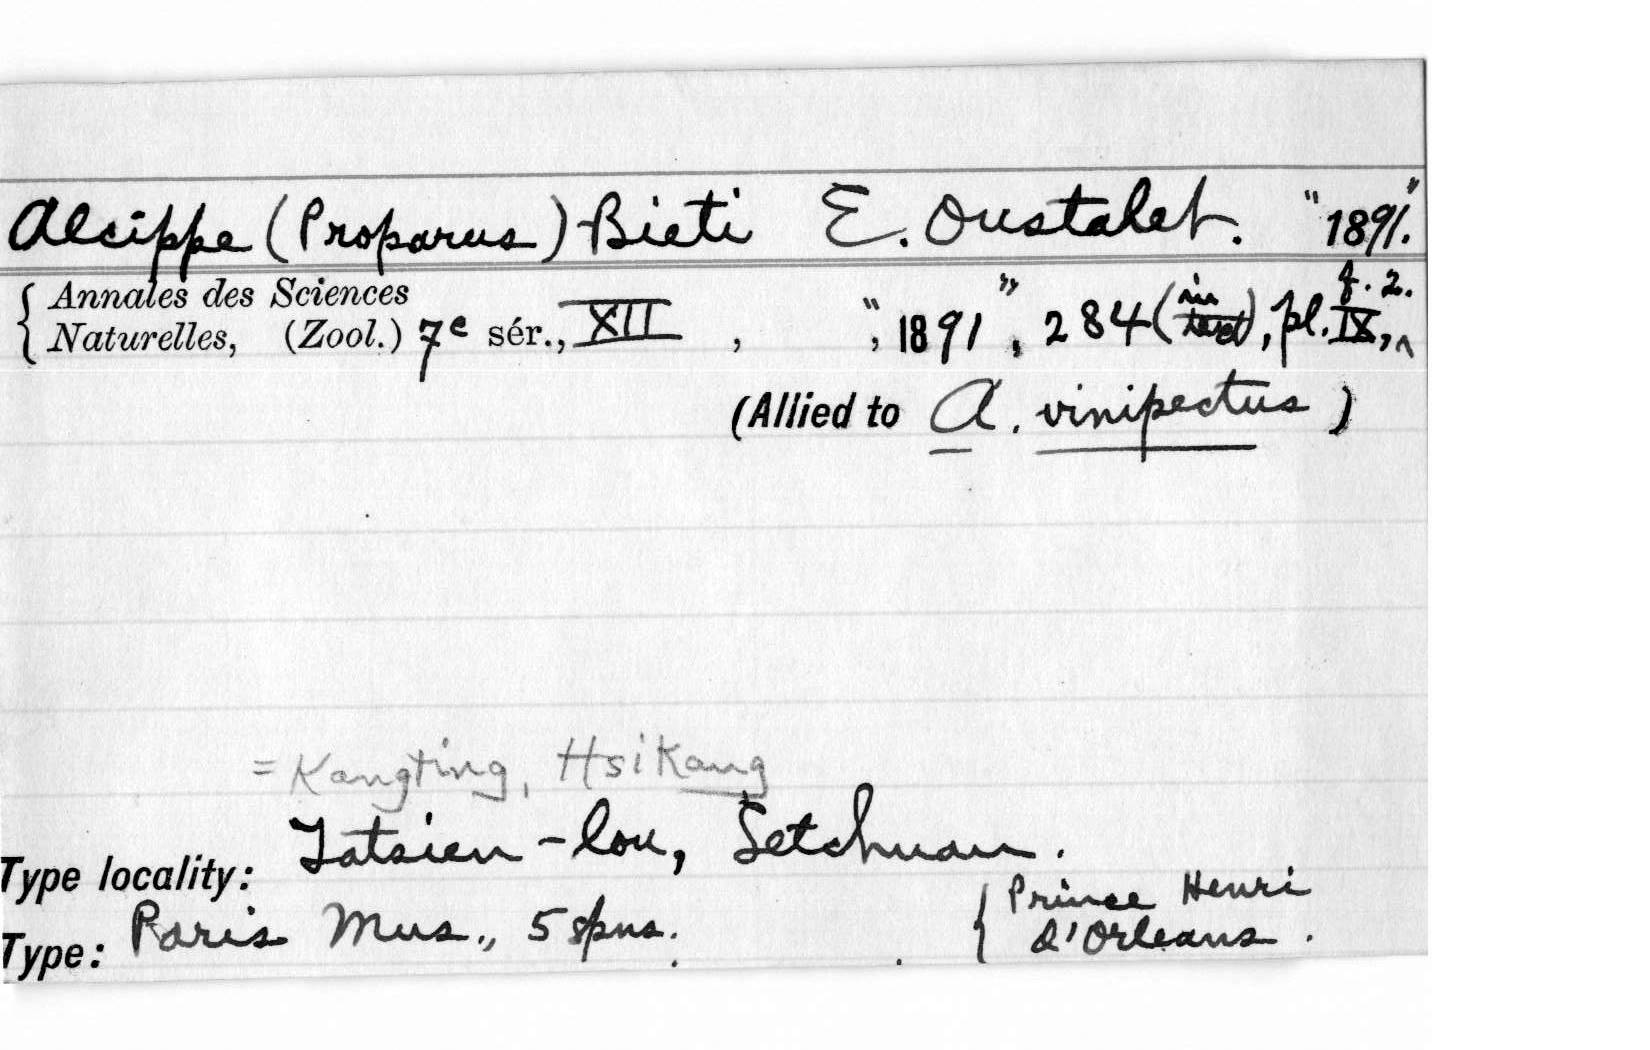 Alcippe (Proparus) Bieti E. Oustalet. "1891."
{ Annales des Sciences
Naturelles, (Zool.) 7e sér., XII , , "1891", 284 (in text), pl. IX, f. 2.
(Allied to A. vinipectus)
= Kangting, Hsikang
Type locality: Tatsien-lou, Setchuan.
Type: Paris Mus., 5 spns. { Prince Henri
d'Orleans.